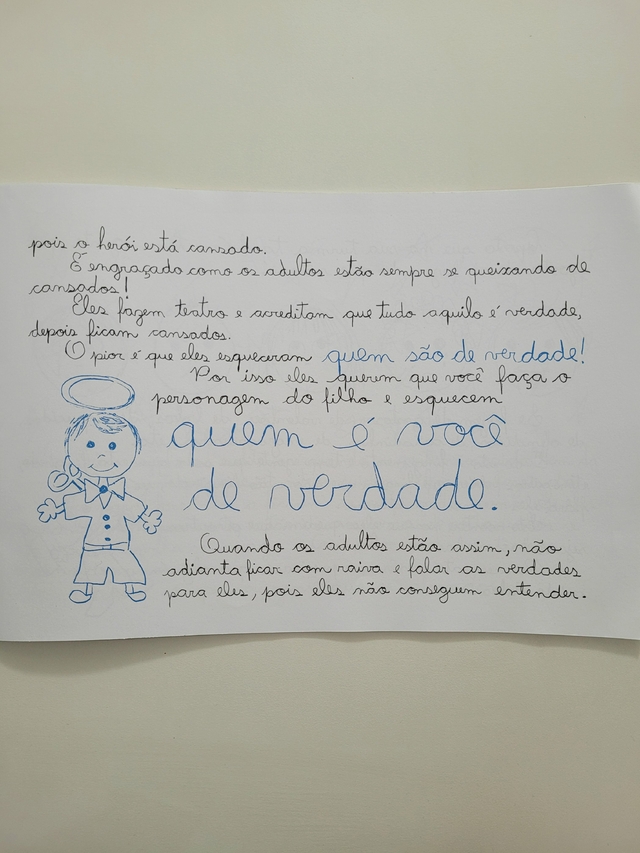 pois o herói está cansado.
É engraçado como os adultos estão sempre se queixando de
cansados!
Eles fazem teatro e acreditam que tudo aquilo é verdade,
depois ficam cansados.
O pior é que eles esqueceram quem são de verdade!
Por isso eles querem que você faça o
personagem do filho e esquecem
quem é você
de verdade.
Quando os adultos estão assim, não
adianta ficar com raiva e falar as verdades
para eles, pois eles não conseguem entender.